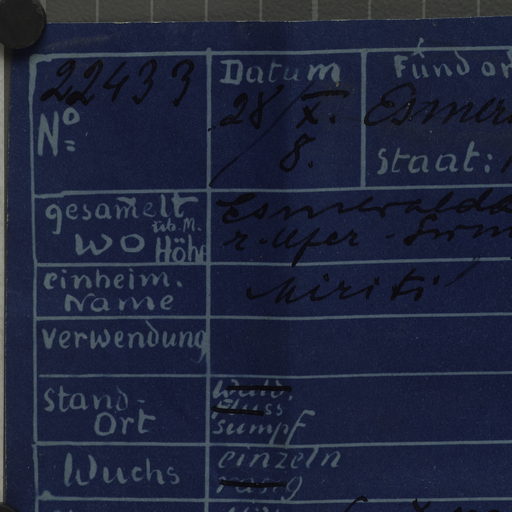 22433
Nº
Datum
28/X.
8.
Fundor
Esmer
Staat:
gesam̄elt
wo üb. M. Höhe
Esmeralda
r. Ufer -
einheim.
Name
Miriti
Verwendung
Stand-
Ort
Wald.
Fluss
Sumpf
Wuchs
einzeln
rasig